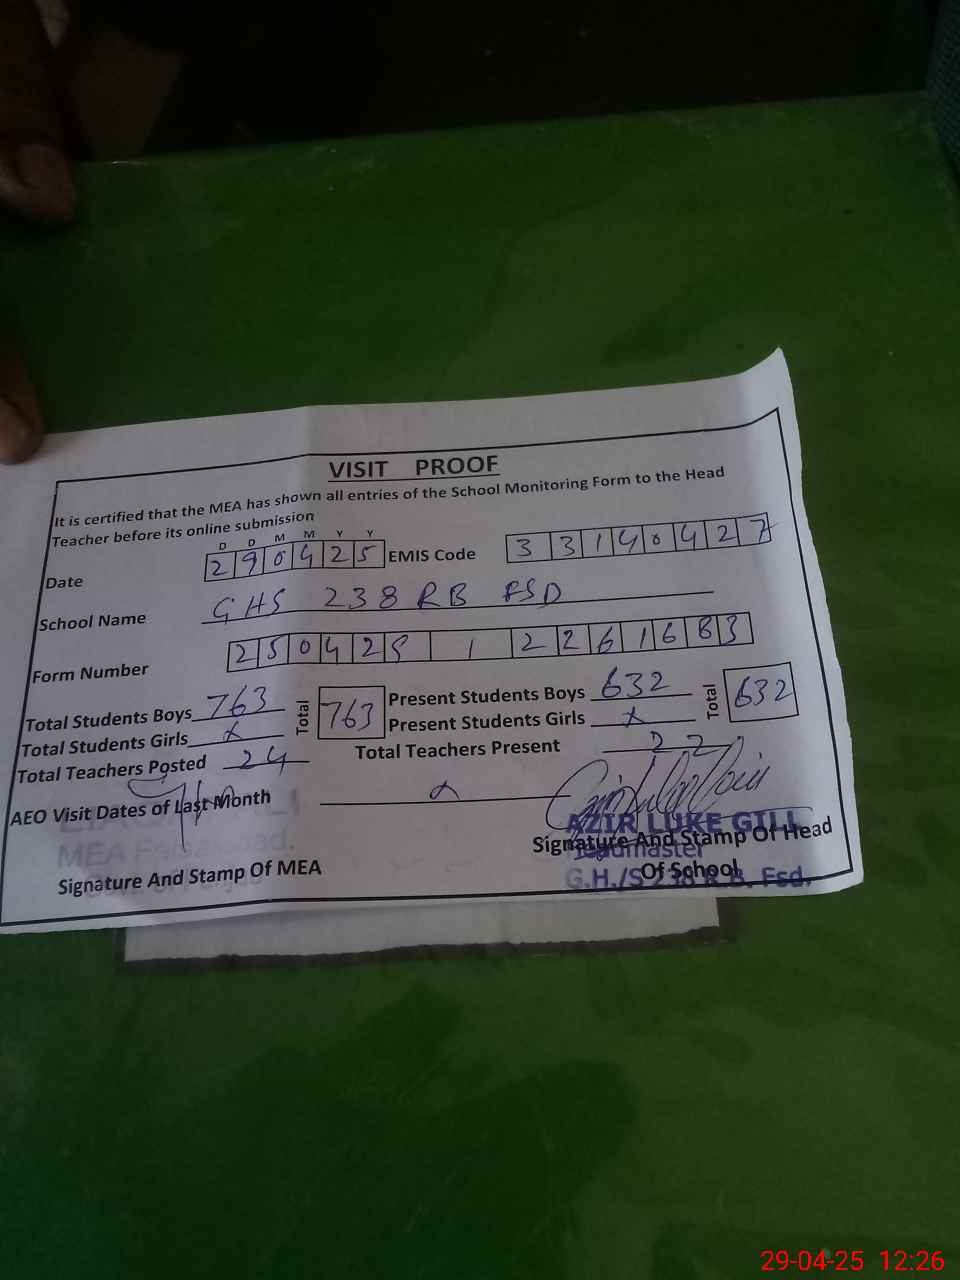 VISIT PROOF
It is certified that the MEA has shown all entries of the School Monitoring Form to the Head
Teacher before its online submission
D D M M Y Y
Date 290425 EMIS Code 33140427
School Name GHS 238 RB FSD
Form Number 250429 1 2261683
Total Students Boys 763 Total 763 Present Students Boys 632 Total 632
Total Students Girls x Present Students Girls x
Total Teachers Posted 24 Total Teachers Present 22
AEO Visit Dates of Last Month x
AZIR LUKE GILL
Signature And Stamp Of Head
Headmaster
Of School
G.H./S 238 R.B. Fsd.
MEA Faisalabad.
Signature And Stamp Of MEA
29-04-25 12:26